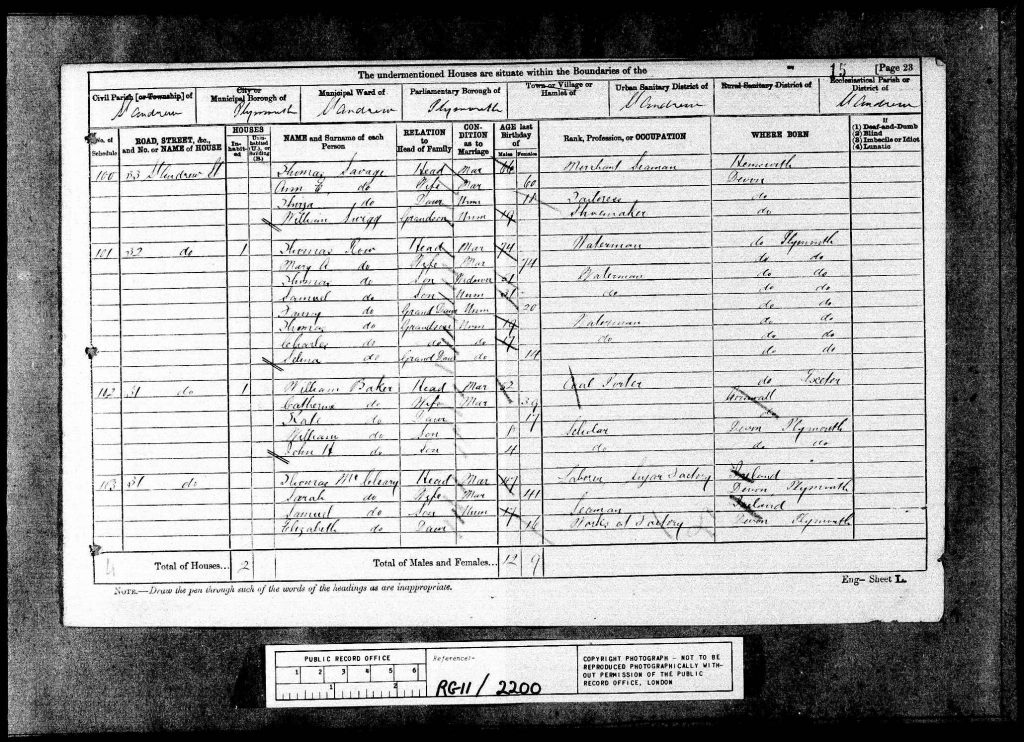 The undermentioned Houses are situate within the Boundaries of the
15 [Page 23
Civil Parish [or Township] of
City or Municipal Borough of
Municipal Ward of
Parliamentary Borough of
Town or Village or Hamlet of
Urban Sanitary District of
Rural Sanitary District of
Ecclesiastical Parish or District of
St Andrew Plymouth St Andrew Plymouth St Andrew St Andrew
No. of Schedule
ROAD, STREET, &c., and No. or NAME of HOUSE
HOUSES
Inhabited
Uninhabited (U.), or Building (B.)
NAME and Surname of each Person
RELATION to Head of Family
CONDITION as to Marriage
AGE last Birthday of
Males Females
Rank, Profession, or OCCUPATION
WHERE BORN
If
(1) Deaf-and-Dumb
(2) Blind
(3) Imbecile or Idiot
(4) Lunatic
100 33 St Andrew St Thomas Savage Head Mar 66 Merchant Seaman
Ann E do Wife Mar 60 Devon
do Daur Unm Tailoress do
William Grandson Unm 19 Shoemaker do
101 32 do 1 Thomas Row Head Mar 74 Waterman do Plymouth
Mary A do Wife Mar 74 do do
Thomas do Son Widower 51 Waterman do do
Samuel do Son Unm 31 do do do
do Grand Daur Unm 20 do do
Thomas do Grandson Unm 19 Waterman do do
Charles do do do 17 do do do
Selina do Grand Daur do 14 do do
102 31 do 1 William Baker Head Mar 52 Coal Porter do Exeter
Catherine do Wife Mar 39 Cornwall
Kate do Daur 17 do
William do Son Scholar Devon Plymouth
John H do Son 4 do do do
103 31 do Thomas Mc Cleary Head Mar 47 Laborer Sugar Factory Ireland
Sarah do Wife Mar 41 Devon Plymouth
Samuel do Son Unm 17 Seaman Ireland
Elizabeth do Daur 16 Works at Factory Devon Plymouth
4 Total of Houses... 2 Total of Males and Females... 12 9
NOTE.—Draw the pen through such of the words of the headings as are inappropriate.
Eng- Sheet L.
PUBLIC RECORD OFFICE
1 2 3 4 5 6
1 2
Reference:-
RG11/2200
COPYRIGHT PHOTOGRAPH - NOT TO BE
REPRODUCED PHOTOGRAPHICALLY WITH-
OUT PERMISSION OF THE PUBLIC
RECORD OFFICE, LONDON